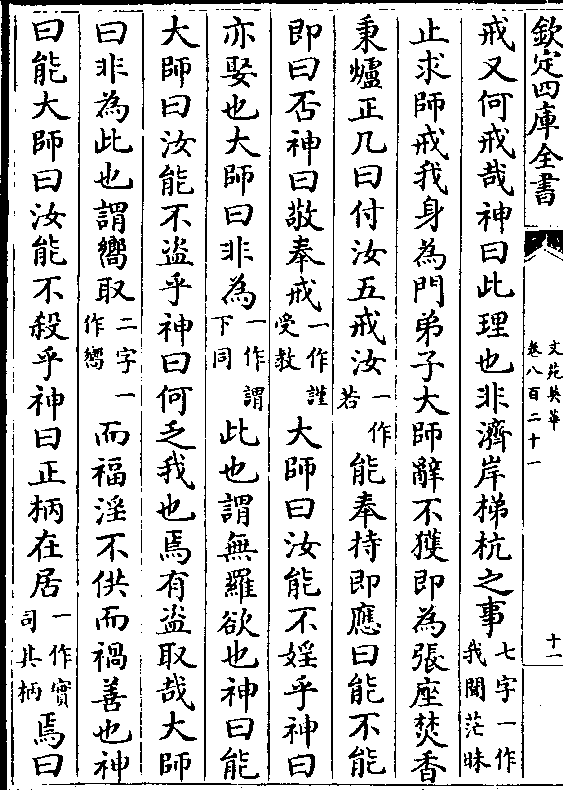 欽定四庫全書
文苑英華
卷八百二十一
十一
戒又何戒哉神曰此理也非濟岸梯杭之事七字一作我聞茫昧
止求師戒我身為門弟子大師辭不獲即為張座焚香
秉爐正几曰付汝五戒汝一作若能奉持即應曰能不能
即曰否神曰敬奉戒一作謹受教大師曰汝能不婬乎神曰
亦娶也大師曰非為一作謂下同此也謂無羅欲也神曰能
大師曰汝能不盜乎神曰何乏我也焉有盜取哉大師
曰非為此也謂嚮取二字一作嚮而福淫不供而禍善也神
曰能大師曰汝能不殺乎神曰正柄在居一作實司其柄焉曰